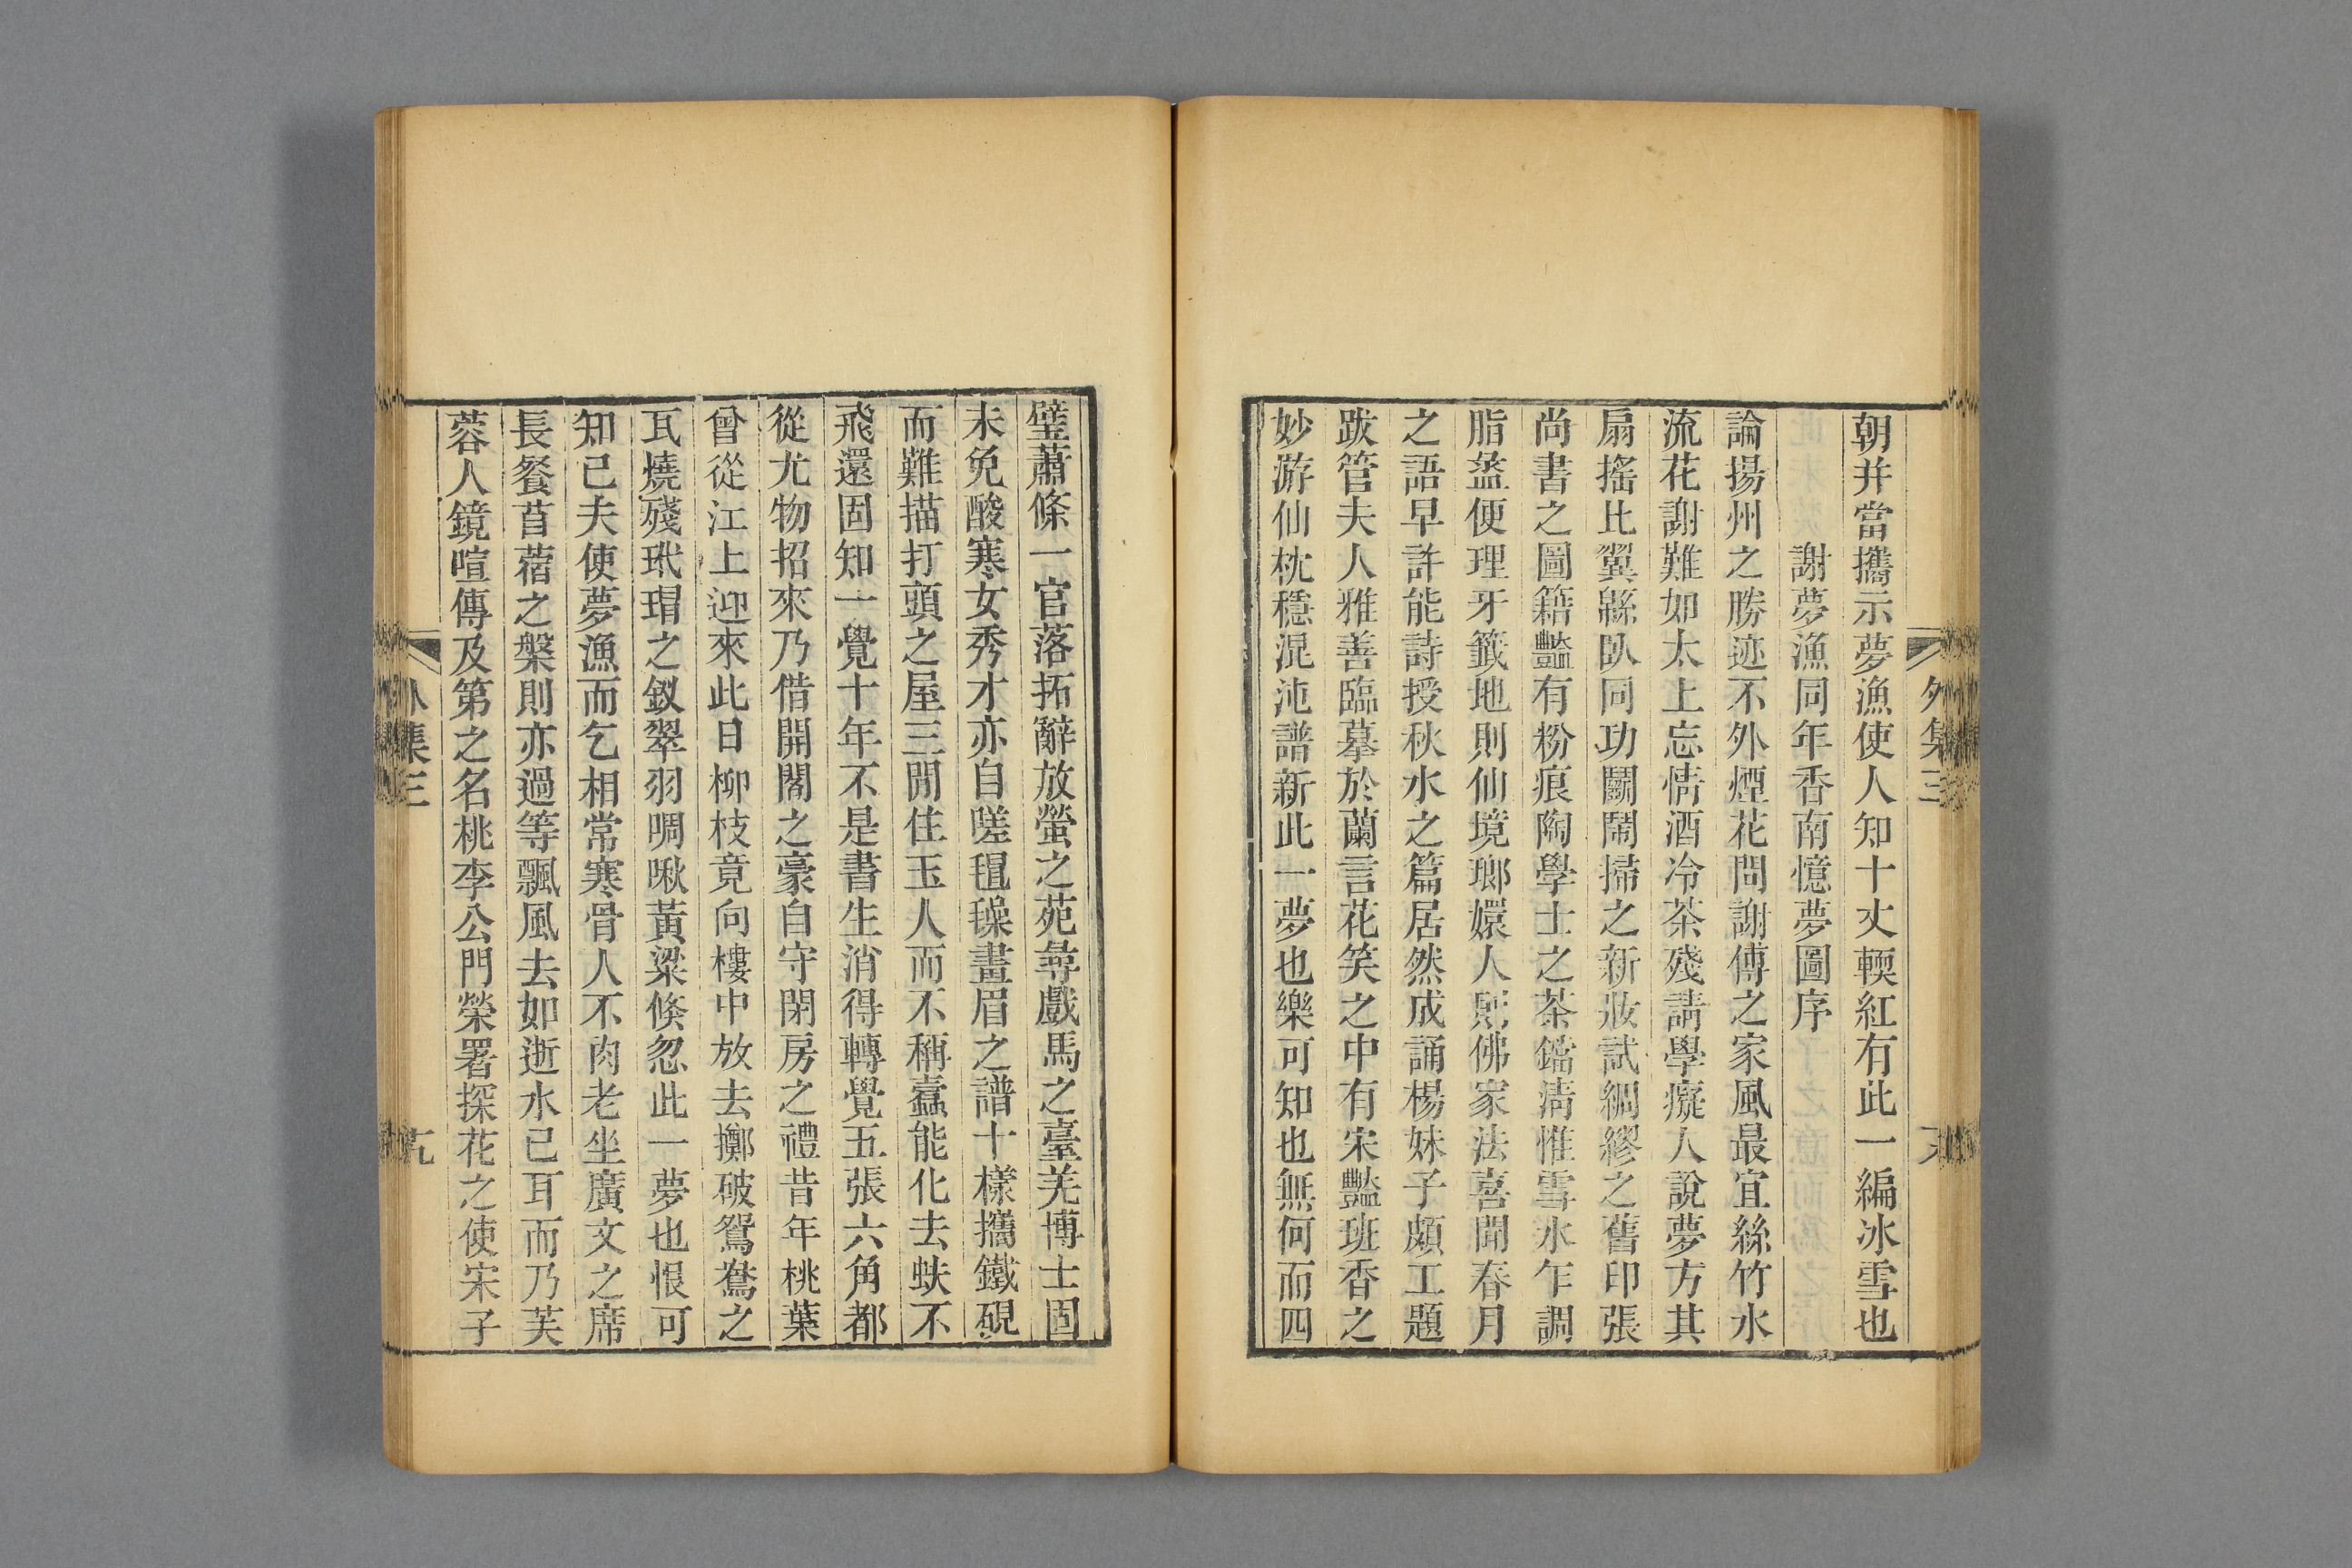 外集三
朝并當攜示夢漁使人知十丈輭紅有此一編冰雪也
謝夢漁同年香南憶夢圖序
論揚州之勝迹不外煙花問謝傅之家風最宜絲竹水
流花謝難如太上忘情酒冷茶殘請學癡人說夢方其
扇搖比翼緜臥同功鬭鬧掃之新妝試綢繆之舊印張
尚書之圖籍豔有粉痕陶學士之茶鐺清惟雪水乍調
脂盝便理牙籤地則仙境瑯嬛人則佛家法喜聞春月
之語早許能詩授秋水之篇居然成誦楊妹子頗工題
跋管夫人雅善臨摹於蘭言花笑之中有宋豔班香之
妙游仙枕穩混沌譜新此一夢也樂可知也無何而四
璧蕭條一官落拓辭放螢之苑尋戲馬之臺羌博士固
未免酸寒女秀才亦自嗟𣰽𣰕畫眉之譜十樣攜鐵硯
而難描打頭之屋三閒住玉人而不稱蠹能化去蚨不
飛還固知一覺十年不是書生消得轉覺五張六角都
從尤物招來乃偕開閣之豪自守閉房之禮昔年桃葉
曾從江上迎來此日柳枝竟向樓中放去擲破鴛鴦之
瓦燒殘玳瑁之釵翠羽啁啾黃粱倏忽此一夢也恨可
知已夫使夢漁而乞相常寒骨人不肉老坐廣文之席
長餐苜蓿之槃則亦過等飄風去如逝水已耳而乃芙
蓉人鏡喧傳及第之名桃李公門榮署探花之使宋子
外集三